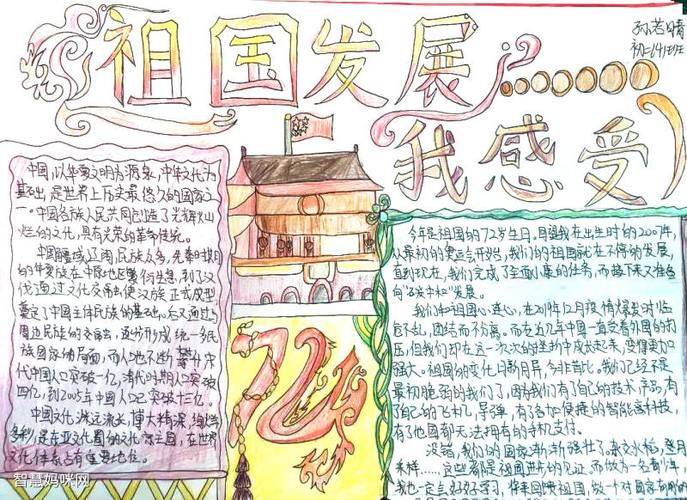 祖国发展
我感受
孙若晴
初二14班
中国,以华夏文明为源泉,中华文化为
基础,是世界上历史最悠久的国家之
一。中国各族人民共同创造了光辉灿
烂的文化,具有光荣的革命传统。
中国疆域辽阔,民族众多,先秦时期
的华夏族在中原地区繁衍生息,到了汉
代通过文化交融使汉族正式成型
奠定了中国主体民族的基础。后又通过与
周边民族的交融,逐步形成统一多民
族国家的局面,而人口也不断攀升,宋
代中国人口突破一亿,清代时期人口突破
四亿,到2005年中国人口已突破十三亿。
中国文化渊远流长、博大精深、绚烂
多彩,是东亚文化圈的文化宗主国,在世界
文化体系占有重要地位。
72
今年是祖国的72岁生日,回望我在出生时的2007年,
从最初的奥运会开始,我们的祖国就在不停的发展,
直到现在,我们完成了全面小康的任务,而接下来又准备
向"各发中和"发展。
我们和祖国心连心,在2019年12月疫情爆发时临
危不乱,团结而不分离。而在近几年中国一直受着外国的打
压,但我们却在这一次次的挫折中成长起来,变得更加
强大。祖国的变化日新月异,今非昔比。我们已经不是
最初脆弱的我们了,因为我们有了自己的技术、产品,有
了自己的飞机,导弹,有了各加便捷的智能高科技,
有了他国都无法拥有的手机支付。
没错,我们的国家渐渐强壮了。杂交水稻,登月
采样……这些都是祖国进步的见证。而做为一名青少年,
我也一定会好好学习,将来回馈祖国,做一个对国家有用的
智慧妈咪网